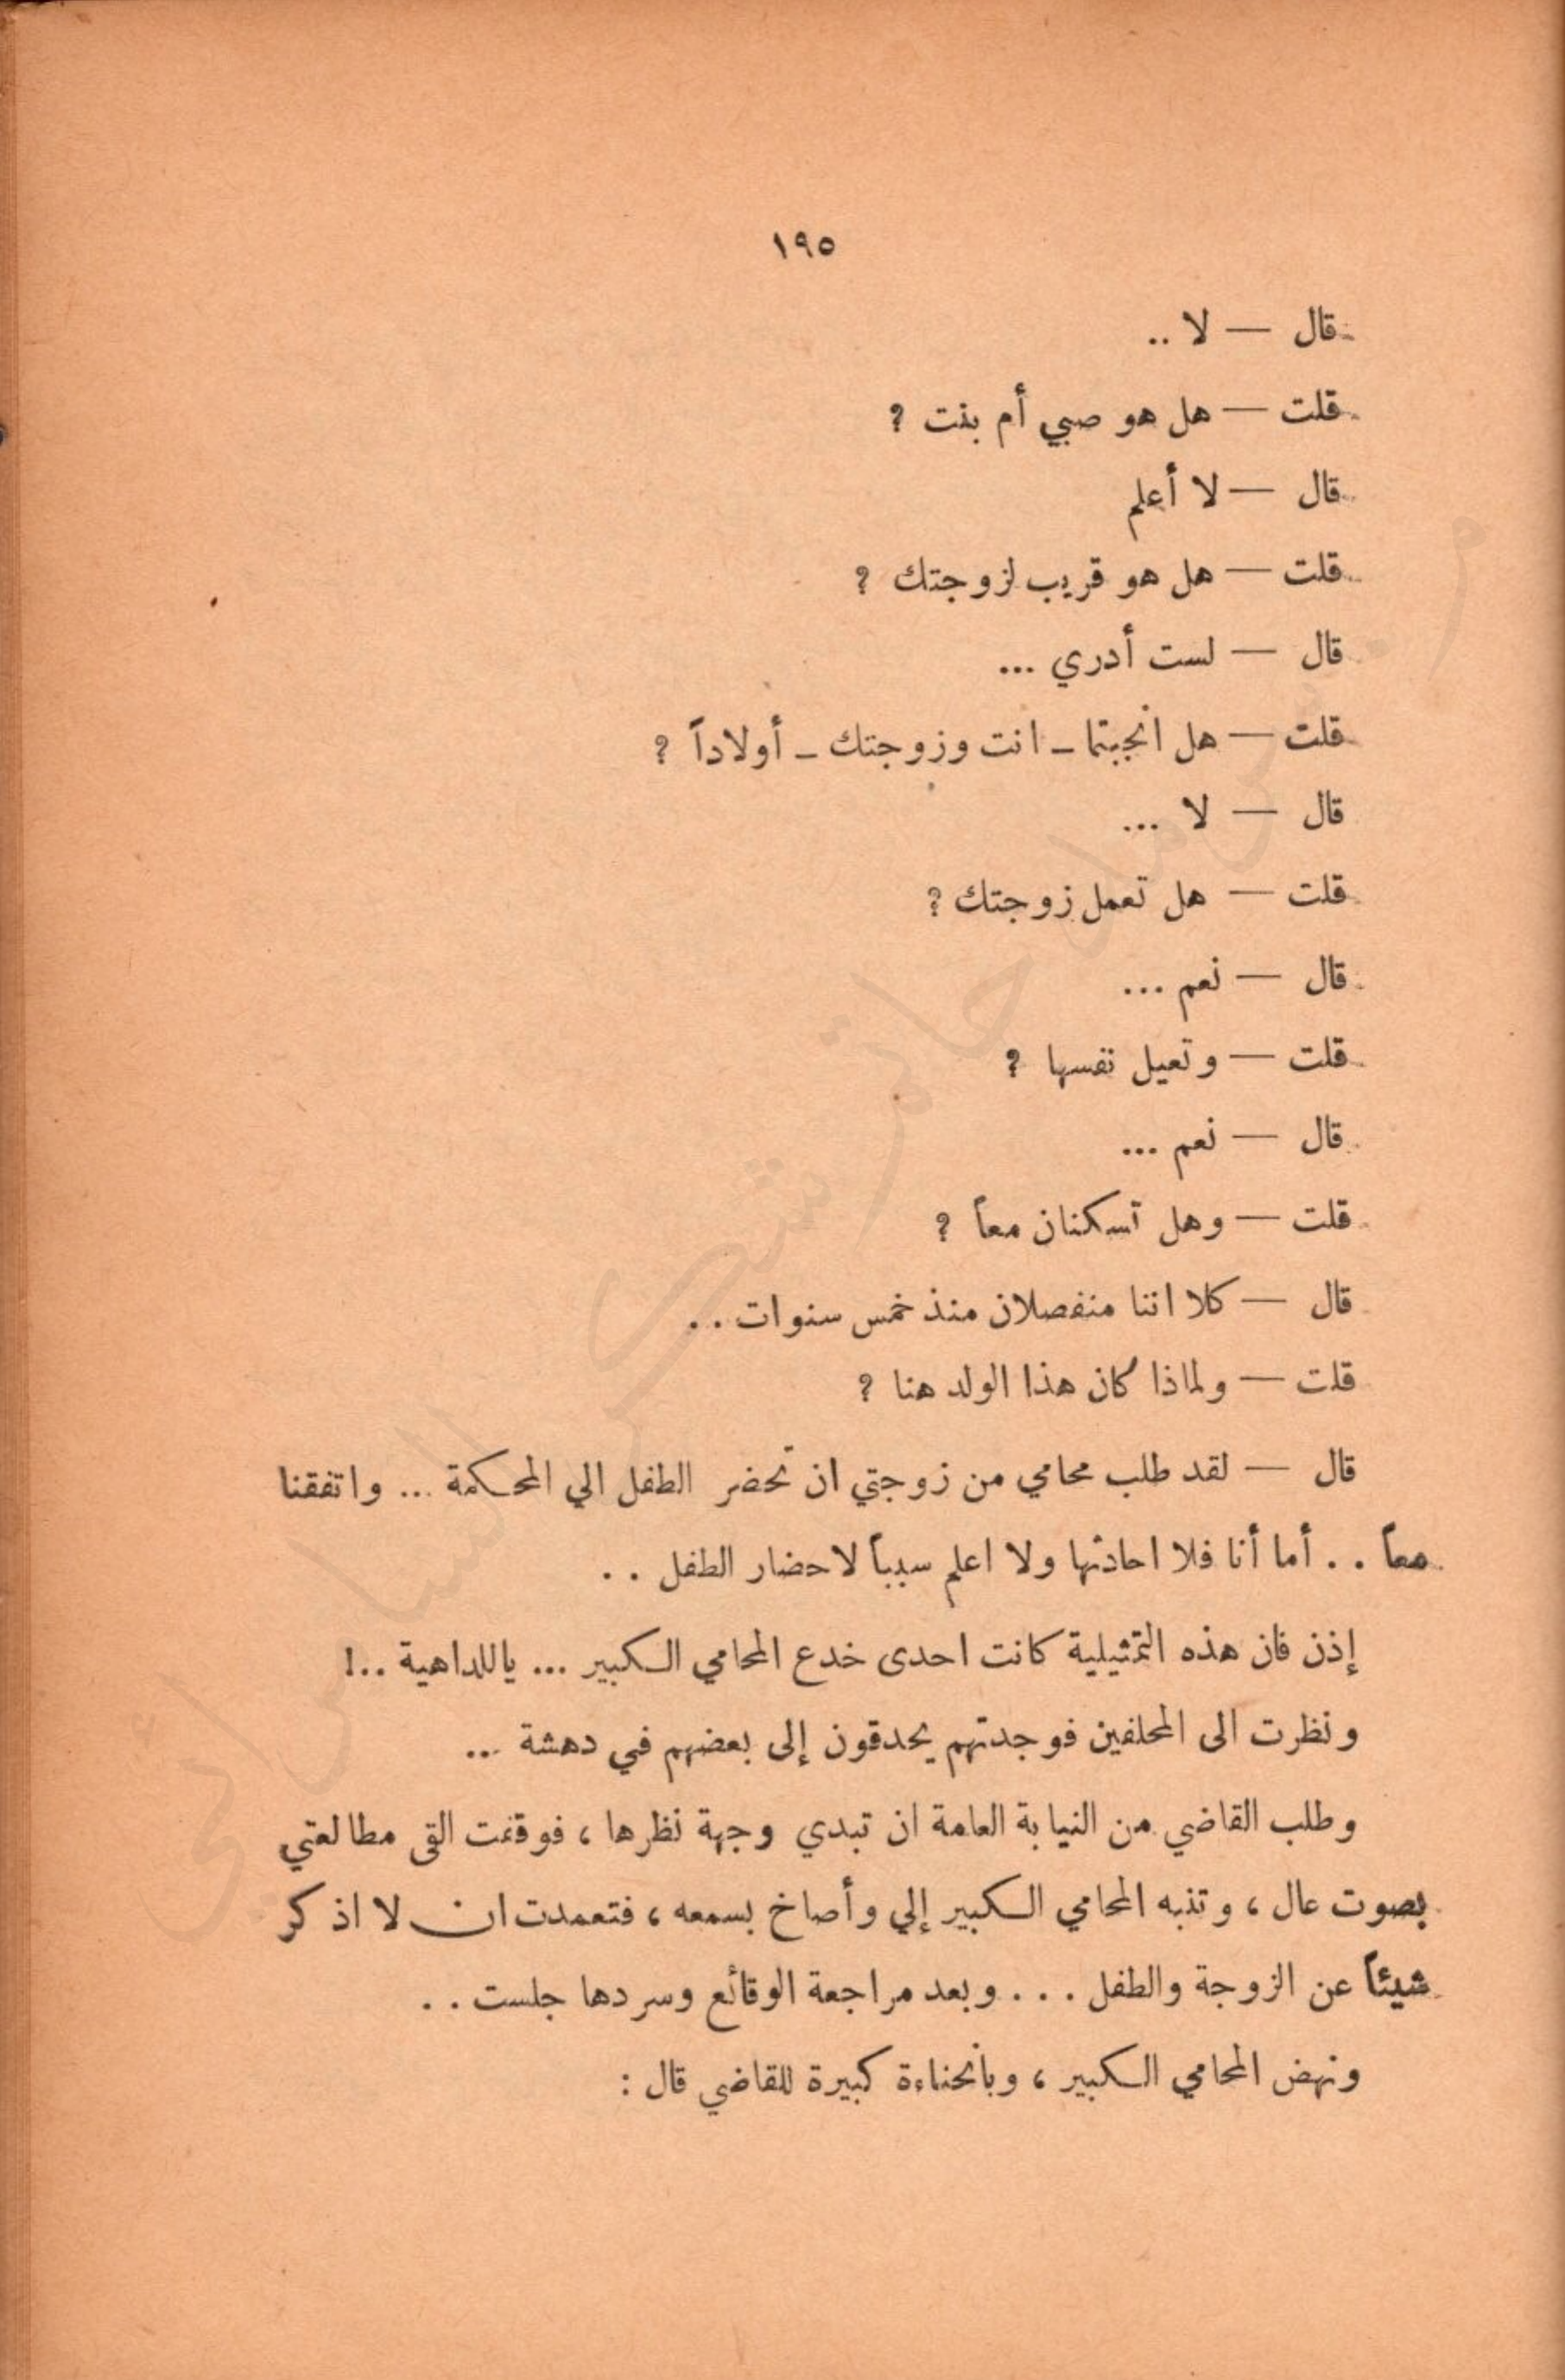 ١٩٥
قال — لا ..
قلت — هل هو صبي أم بنت ؟
قال — لا أعلم
قلت — هل هو قريب لزوجتك ؟
قال — لست أدري ...
قلت — هل انجبتما ــ انت وزوجتك ــ أولاداً ؟
قال — لا ...
قلت — هل تعمل زوجتك ؟
قال — نعم ...
قلت — وتعيل نفسها ؟
قال — نعم ...
قلت — وهل تسكنان معاً ؟
قال — كلا اننا منفصلان منذ خمس سنوات . .
قلت — ولماذا كان هذا الولد هنا ؟
قال — لقد طلب محامي من زوجتي ان تحضر الطفل الي المحكمة ... واتفقنا
معاً . . أما أنا فلا احادثها ولا اعلم سبباً لاحضار الطفل . .
إذن فان هذه التمثيلية كانت احدى خدع المحامي الكبير ... ياللداهية ..!
ونظرت الى المحلفين فوجدتهم يحدقون إلى بعضهم في دهشة ...
وطلب القاضي من النيابة العامة ان تبدي وجهة نظرها ، فوقفت القى مطالعتي
بصوت عال ، وتنبه المحامي الكبير إلي وأصاخ بسمعه ، فتعمدت ان لا اذكر
شيئاً عن الزوجة والطفل . . . وبعد مراجعة الوقائع وسردها جلست . .
ونهض المحامي الكبير ، وبانحناءة كبيرة للقاضي قال :